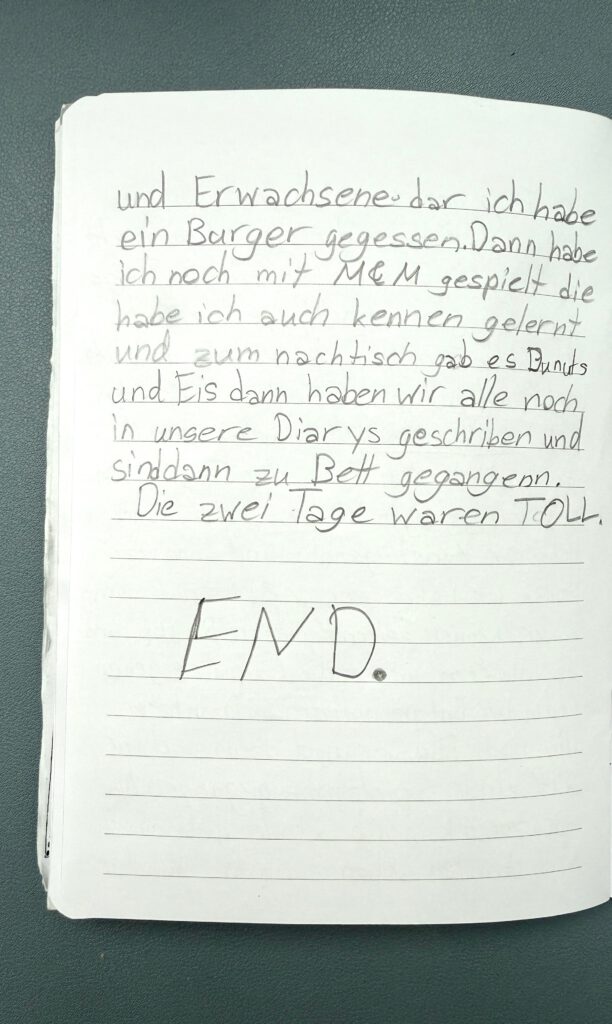 und Erwachsene. dar ich habe
ein Burger gegessen. Dann habe
ich noch mit M&M gespielt die
habe ich auch kennen gelernt
und zum nachtisch gab es
und Eis dann haben wir alle noch
in unsere Diarys geschriben und
sind dann zu Bett gegangenn.
Die zwei Tage waren TOLL.
END.